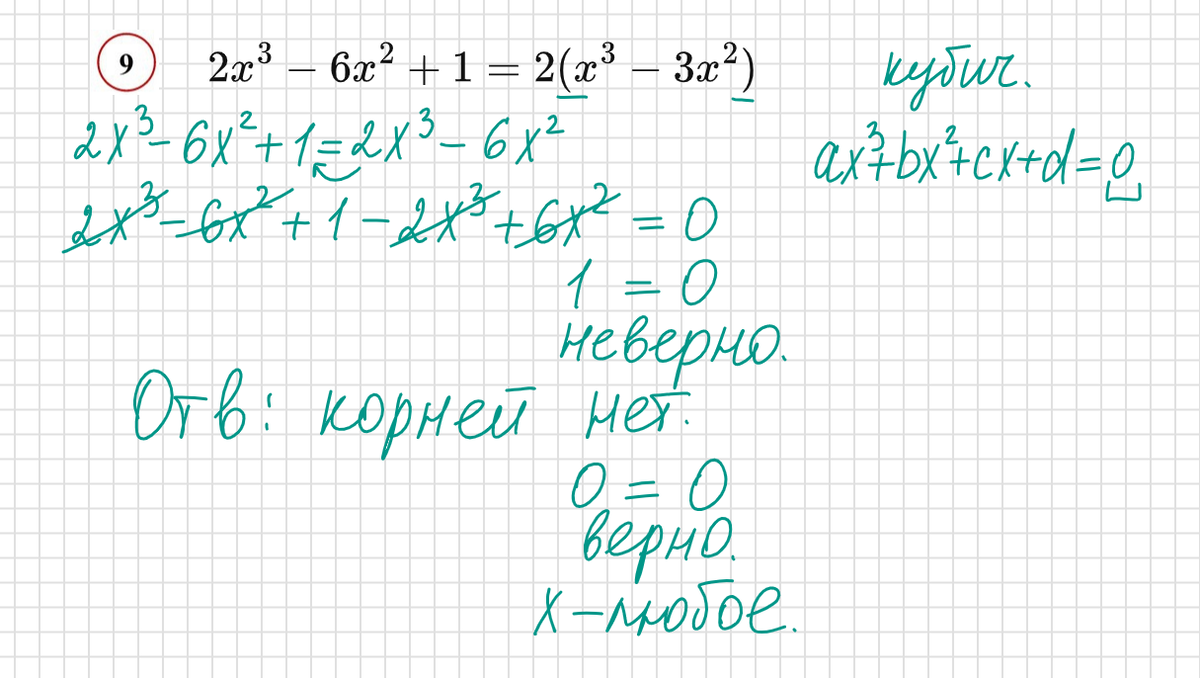 9 2x³ − 6x² + 1 = 2(x³ − 3x²)
кубич.
2x³ − 6x² + 1 = 2x³ − 6x²
ax³ + bx² + cx + d = 0
2x³ − 6x² + 1 − 2x³ + 6x² = 0
1 = 0
неверно.
Отв: корней нет.
0 = 0
верно.
x − любое.